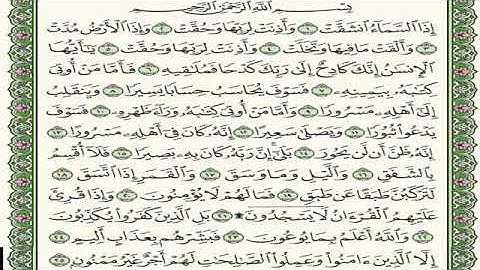 بِسْمِ اللَّهِ الرَّحْمَٰنِ الرَّحِيمِ
إِذَا السَّمَاءُ انشَقَّتْ ١ وَأَذِنَتْ لِرَبِّهَا وَحُقَّتْ ٢ وَإِذَا الْأَرْضُ مُدَّتْ
٣ وَأَلْقَتْ مَا فِيهَا وَتَخَلَّتْ ٤ وَأَذِنَتْ لِرَبِّهَا وَحُقَّتْ ٥ يَا أَيُّهَا
الْإِنسَانُ إِنَّكَ كَادِحٌ إِلَىٰ رَبِّكَ كَدْحًا فَمُلَاقِيهِ ٦ فَأَمَّا مَنْ أُوتِيَ
كِتَابَهُ بِيَمِينِهِ ٧ فَسَوْفَ يُحَاسَبُ حِسَابًا يَسِيرًا ٨ وَيَنقَلِبُ
إِلَىٰ أَهْلِهِ مَسْرُورًا ٩ وَأَمَّا مَنْ أُوتِيَ كِتَابَهُ وَرَاءَ ظَهْرِهِ ١٠ فَسَوْفَ
يَدْعُو ثُبُورًا ١١ وَيَصْلَىٰ سَعِيرًا ١٢ إِنَّهُ كَانَ فِي أَهْلِهِ مَسْرُورًا ١٣
إِنَّهُ ظَنَّ أَن لَّن يَحُورَ ١٤ بَلَىٰ إِنَّ رَبَّهُ كَانَ بِهِ بَصِيرًا ١٥ فَلَا أُقْسِمُ
بِالشَّفَقِ ١٦ وَاللَّيْلِ وَمَا وَسَقَ ١٧ وَالْقَمَرِ إِذَا اتَّسَقَ ١٨
لَتَرْكَبُنَّ طَبَقًا عَن طَبَقٍ ١٩ فَمَا لَهُمْ لَا يُؤْمِنُونَ ٢٠ وَإِذَا قُرِئَ
عَلَيْهِمُ الْقُرْآنُ لَا يَسْجُدُونَ ۩ ٢١ بَلِ الَّذِينَ كَفَرُوا يُكَذِّبُونَ
٢٢ وَاللَّهُ أَعْلَمُ بِمَا يُوعُونَ ٢٣ فَبَشِّرْهُم بِعَذَابٍ أَلِيمٍ ٢٤
إِلَّا الَّذِينَ آمَنُوا وَعَمِلُوا الصَّالِحَاتِ لَهُمْ أَجْرٌ غَيْرُ مَمْنُونٍ ٢٥